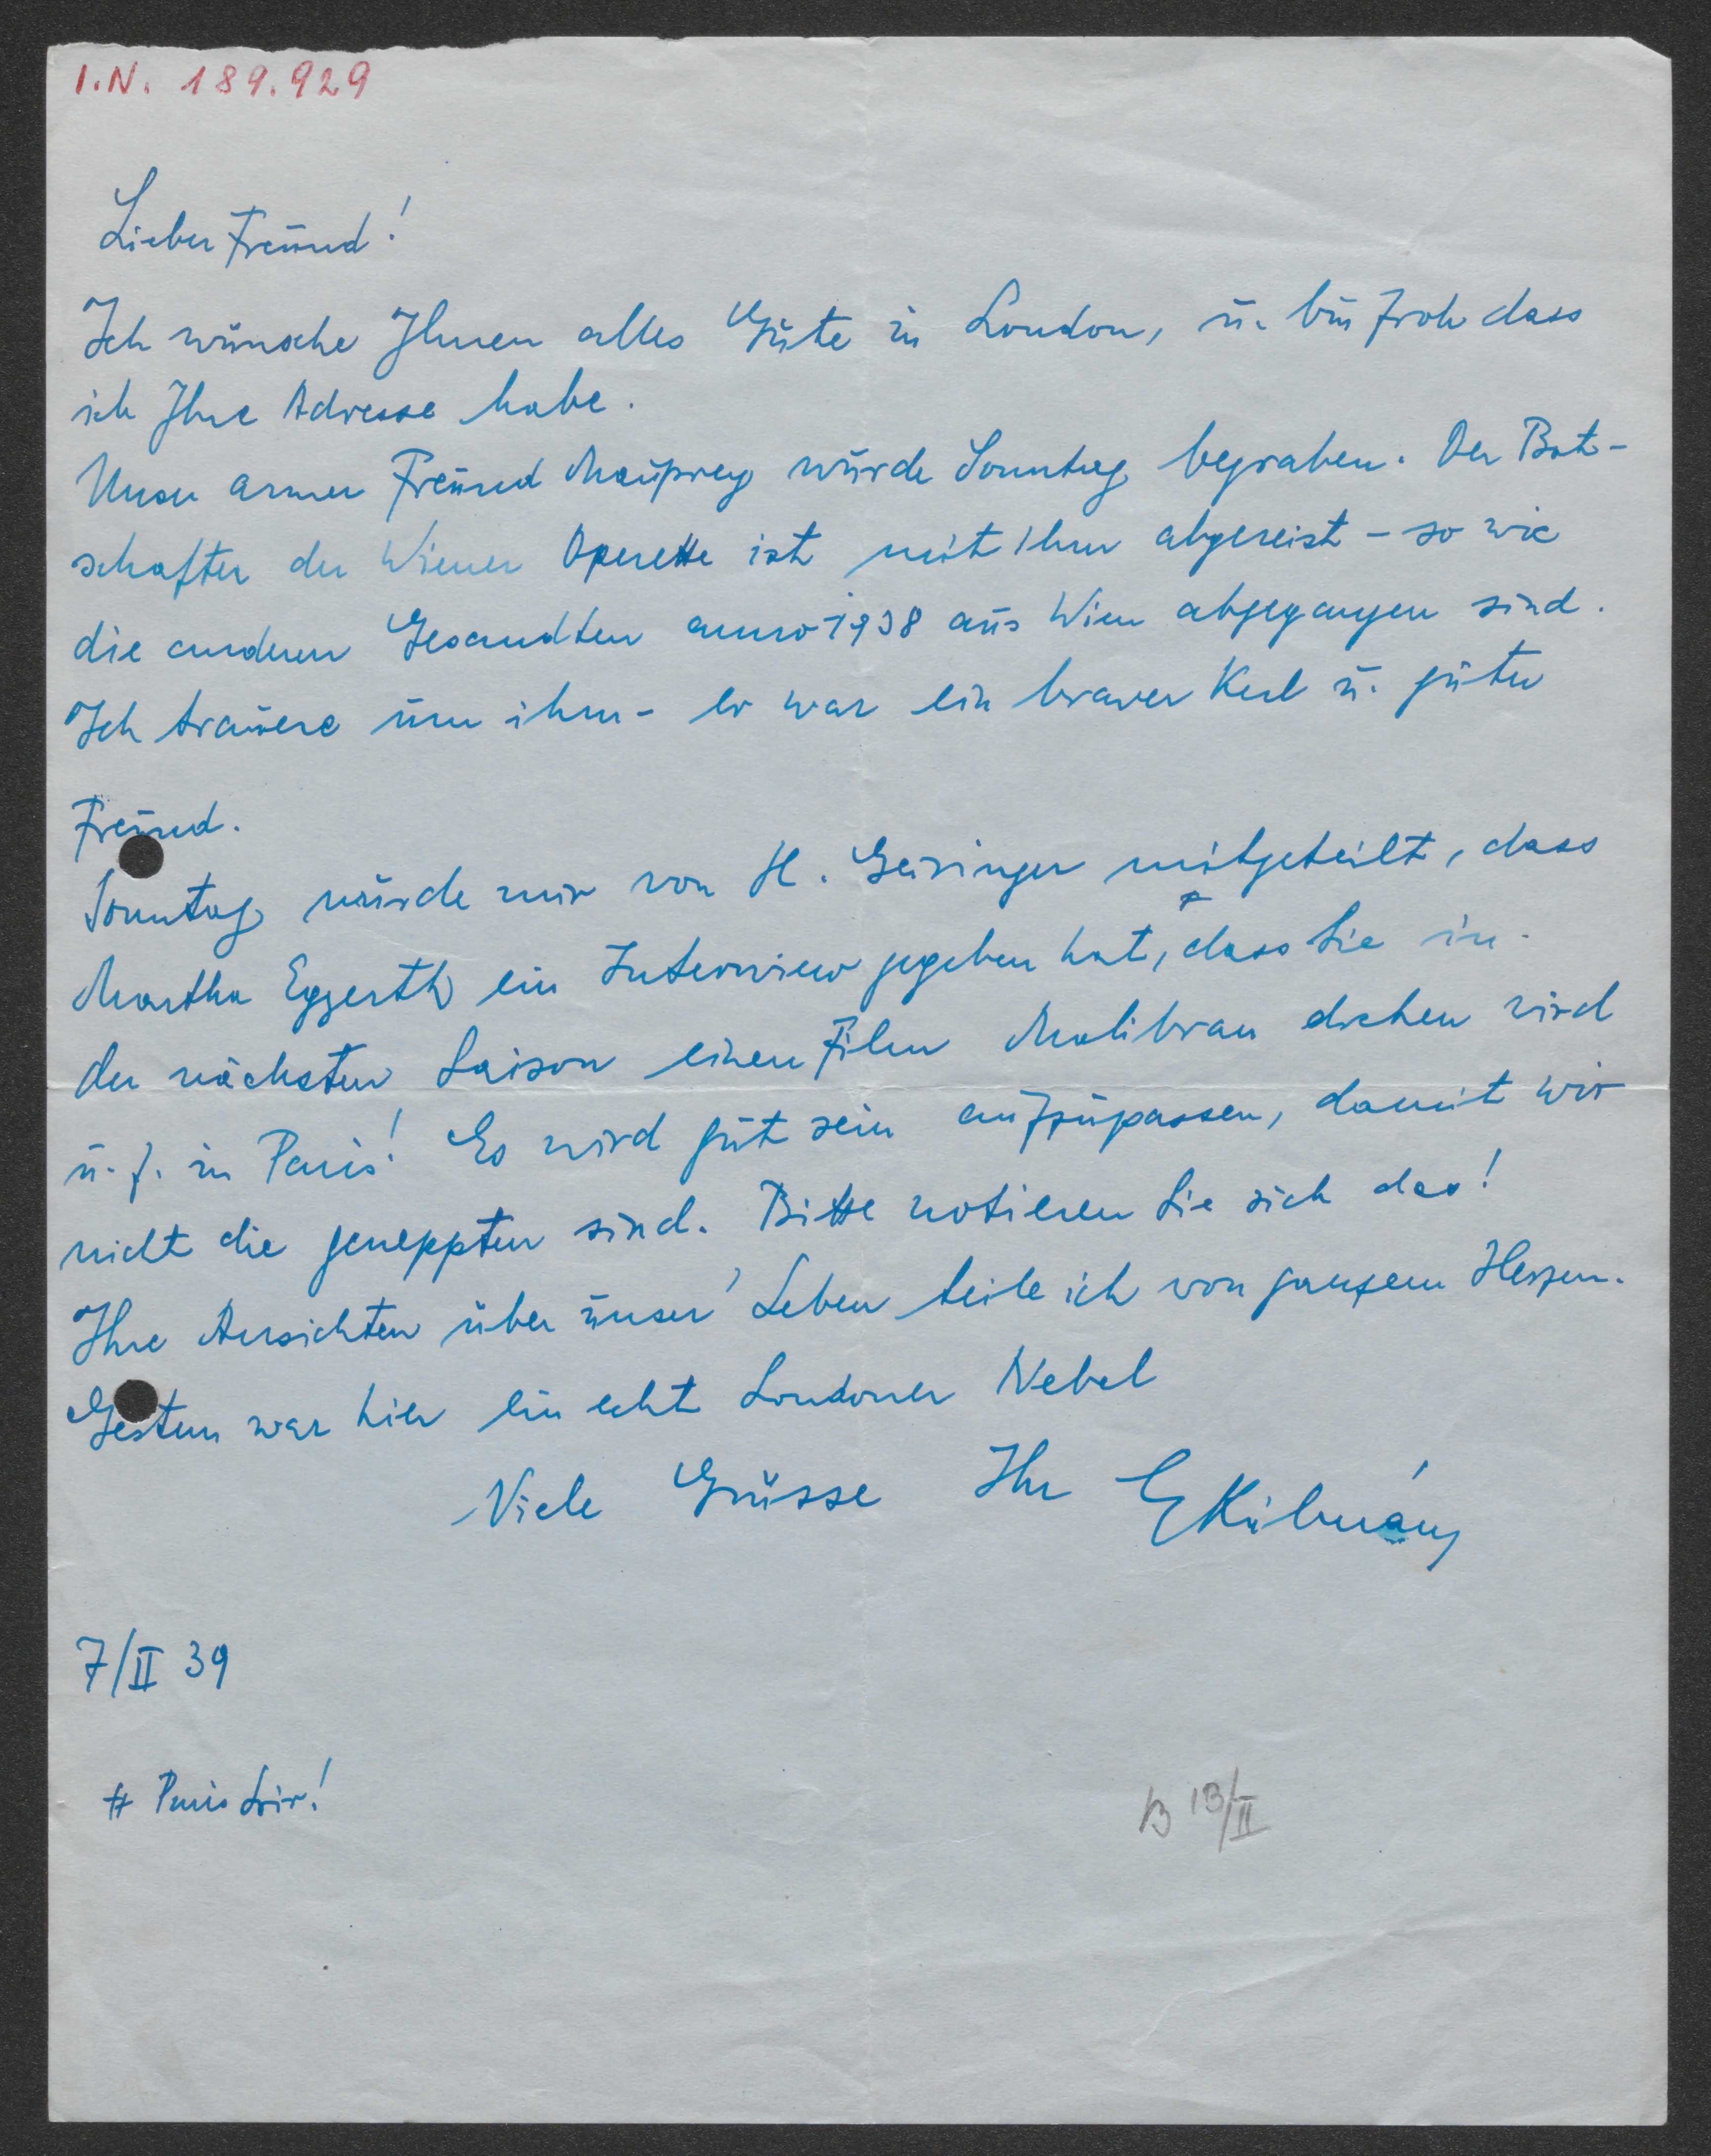 I.N. 189.929
Lieber Freund!
Ich wünsche Ihnen alles Gute in London, u. bin froh dass
ich Ihre Adresse habe.
Unser armer Freund Mauprey wurde Sonntag begraben. Der Bot-
schafter der Wiener Operette ist mit ihm abgereist – so wie
die anderen Gesandten anno 1938 aus Wien abgegangen sind.
Ich trauere um ihm – er war ein braver Kerl u. guter
Freund.
Sonntag wurde mir von H. Geiringer mitgeteilt, dass
Martha Eggerth ein Interview gegeben hat, # dass Sie in
der nächsten Saison einen Film Malibran drehen wird
u. z. in Paris! Es wird gut sein aufzupassen, damit wir
nicht die geneppten sind. Bitte notieren Sie sich das!
Ihre Ansichten über unser "Leben" teile ich von ganzem Herzen.
Gestern war hier ein echt Londoner Nebel
Viele Grüsse Ihr EKálmán
7/II 39
# Paris Soir!
B 13/II